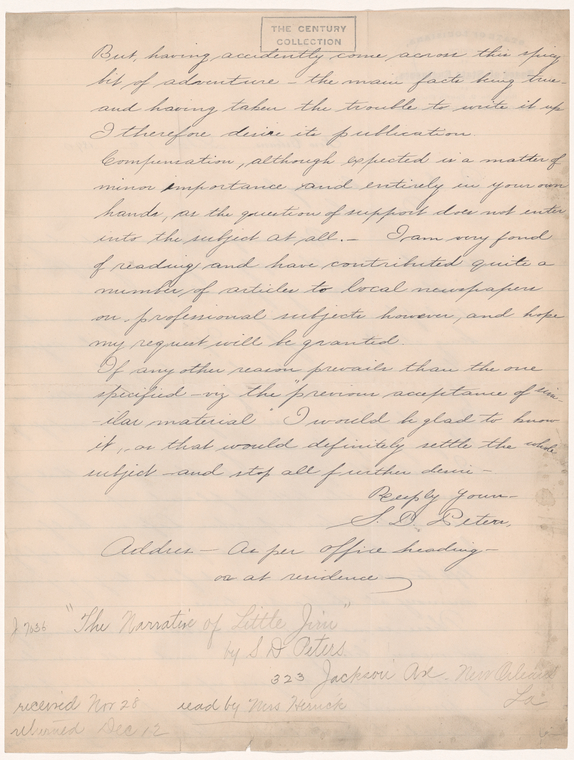 THE CENTURY
COLLECTION
But, having accidently come across this spicy
bit of adventure – the main facts being true –
and having taken the trouble to write it up
I therefore desire its publication.
Compensation, although expected is a matter of
minor importance and entirely in your own
hands, as the question of support does not enter
into the subject at all. – I am very fond
of reading and have contributed quite a
number of articles to local newspapers
on professional subjects however, and hope
my request will be granted.
If any other reason prevails than the one
specified – viz the "previous acceptance of sim-
-ilar material" I would be glad to know
it, as that would definitely settle the whole
subject – and stop all further desire –
Resply Yours –
S. D. Peters.
Address – As per office heading –
or at residence
7636 "The Narrative of Little Jim"
by S D Peters.
323 Jackson Av. New Orleans
La
received Nov 28 read by Mrs Herrick
returned Dec 12